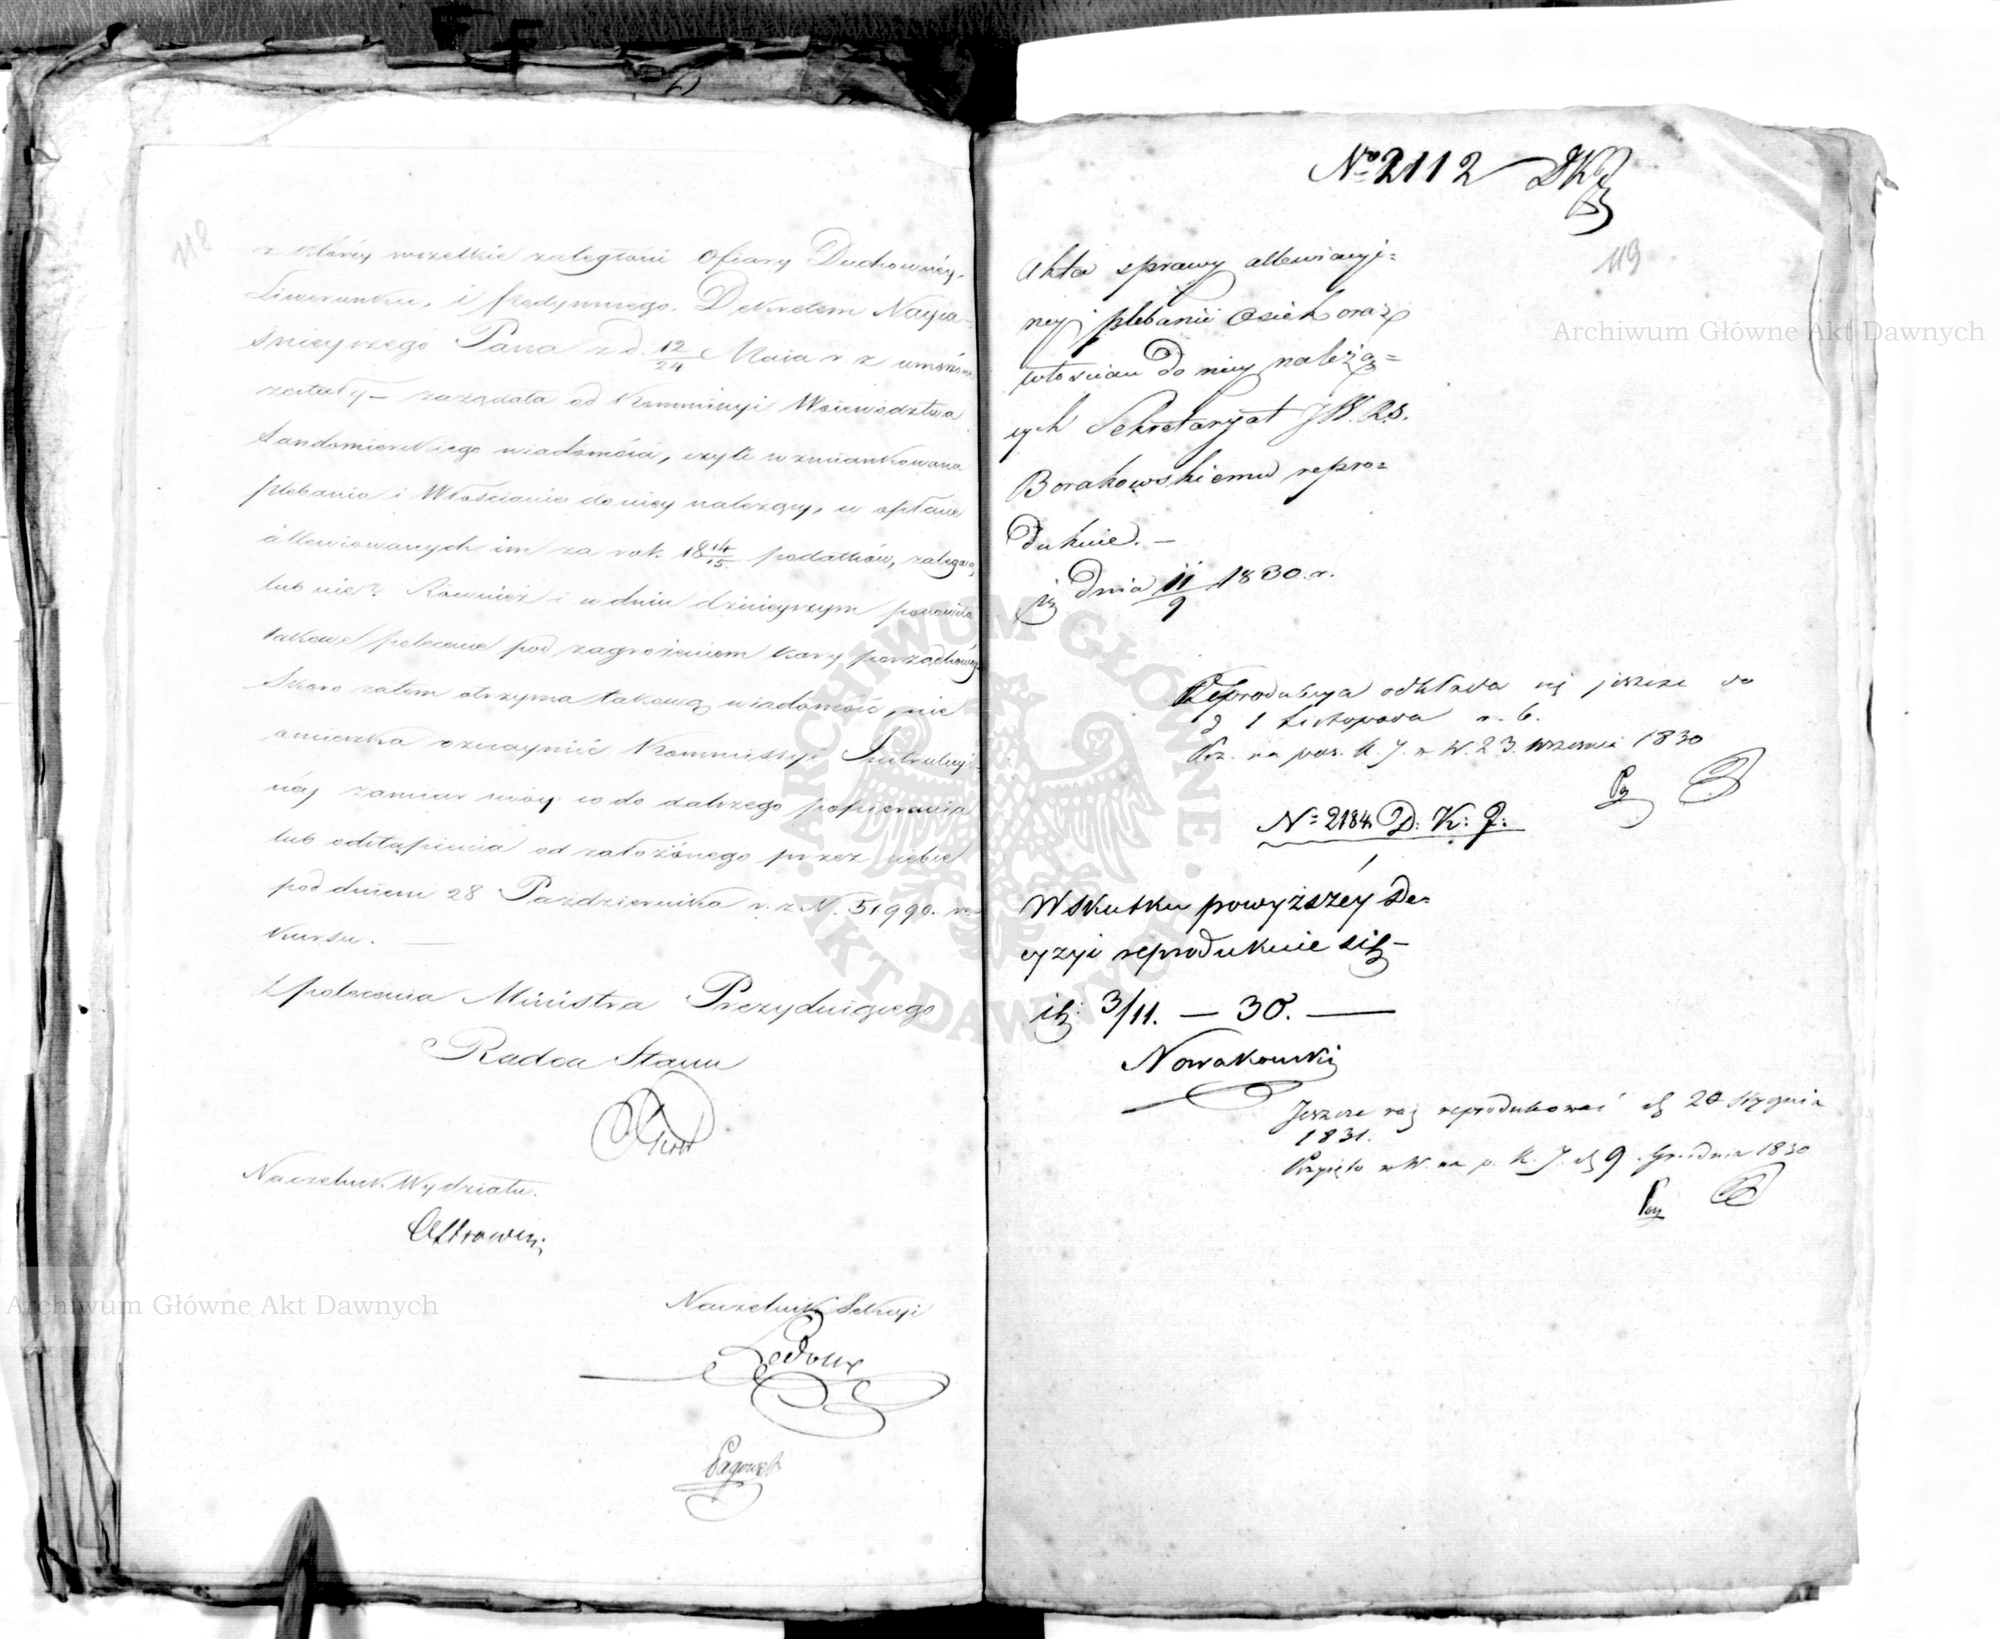 118
z którey wszelkie zaległości Ofiary Duchowney,
Liwerunku, i Podymnego. Dekretem Nayja-
śnieyszego Pana z d. 12/24 Maia r. z umorzone
zostały – zażądała od Kommissyi Woiewództwa
Sandomierskiego wiadomości, czyli wzmiankowana
plebania i Włościanie do niey należący, w opłacie
allewiowanych im za rok 18 14/15 podatków, zalegaią
lub nie? Również i w dniu dzisieyszym ponowiła
takowe polecenie pod zagrożeniem kary porządkowey
Skoro zatem otrzyma takową wiadomość, nie
omieszka oznaymić Kommissyi Instrukcyi-
néy zamiar swóy co do dalszego popierania
lub odstąpienia od założonego przez siebie
pod dniem 28 Października r. z N. 51990. re-
kursu. —
Z polecenia Ministra Prezyduiącego
Radca Stanu
Naczelnik Wydziału.
Naczelnik Sekcyi
Nro 2112 DK
119
Akta sprawy allewiacyj=
ney plebanii Osiek oraz
włościan do niey należą=
cych Sekretaryat JW. R.S.
Borakowskiemu repro=
dukuie. —
dnia 11/9 1830. r.
Reprodukcya odkłada się jeszcze do
d 1 Listopada r. b.
na pos. K. J. w W. 23. września 1830
No 2184 D. K. J.
W skutku powyższéy De=
cyzyi reprodukuie się —
3/11. — 30. —
Nowakowski
Jeszcze raz reprodukować d 20 Stycznia
1831.
Przyięto w W. na p. K. J. d 9. Grudnia 1830
Archiwum Główne Akt Dawnych
Archiwum Główne Akt Dawnych
ARCHIWUM GŁÓWNE AKT DAWNYCH